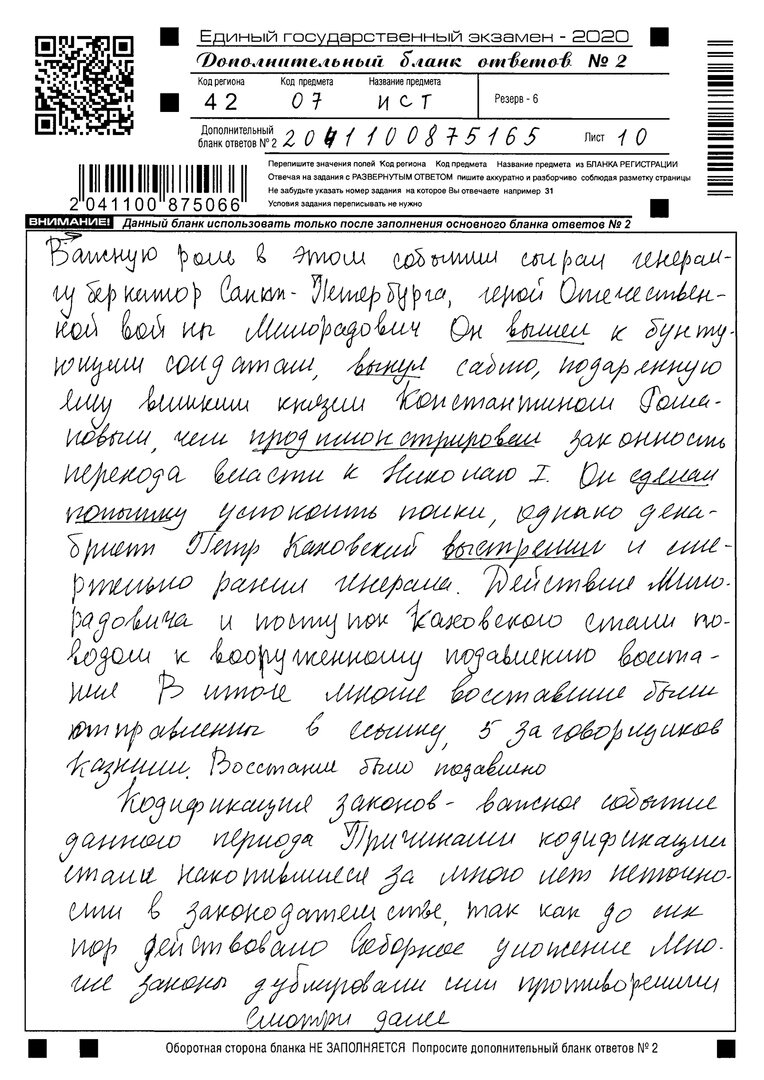 Единый государственный экзамен - 2020
Дополнительный бланк ответов № 2
Код региона Код предмета Название предмета
42 07 ИСТ Резерв - 6
Дополнительный бланк ответов № 2 2041100875165 Лист 10
Перепишите значения полей Код региона Код предмета Название предмета из БЛАНКА РЕГИСТРАЦИИ
Отвечая на задания с РАЗВЕРНУТЫМ ОТВЕТОМ пишите аккуратно и разборчиво соблюдая разметку страницы
Не забудьте указать номер задания на которое Вы отвечаете например 31
Условия задания переписывать не нужно
2 041100 875066
ВНИМАНИЕ! Данный бланк использовать только после заполнения основного бланка ответов № 2
Важную роль в этом событии сыграл генерал-
губернатор Санкт-Петербурга, герой Отечествен-
ной войны Милорадович Он вышел к бунту-
ющим солдатам, вынул саблю, подаренную
ему великим князем Константином Рома-
новым, чем продемонстрировал законность
перехода власти к Николаю I. Он сделал
попытку успокоить полки, однако дека-
брист Петр Каховский выстрелил и сме-
ртельно ранил генерала. Действие Мило-
радовича и поступок Каховского стали по-
водом к вооруженному подавлению восста-
ния В итоге многие восставшие были
отправленны в ссылку, 5 заговорщиков
казнили. Восстание было подавлено
Кодификация законов - важное событие
данного периода Причинами кодификации
стали накопившиеся за много лет неточно-
сти в законодательстве, так как до сих
пор действовало Соборное уложение Мно-
гие законы дублировали или противоречили
Смотри далее
Оборотная сторона бланка НЕ ЗАПОЛНЯЕТСЯ Попросите дополнительный бланк ответов № 2